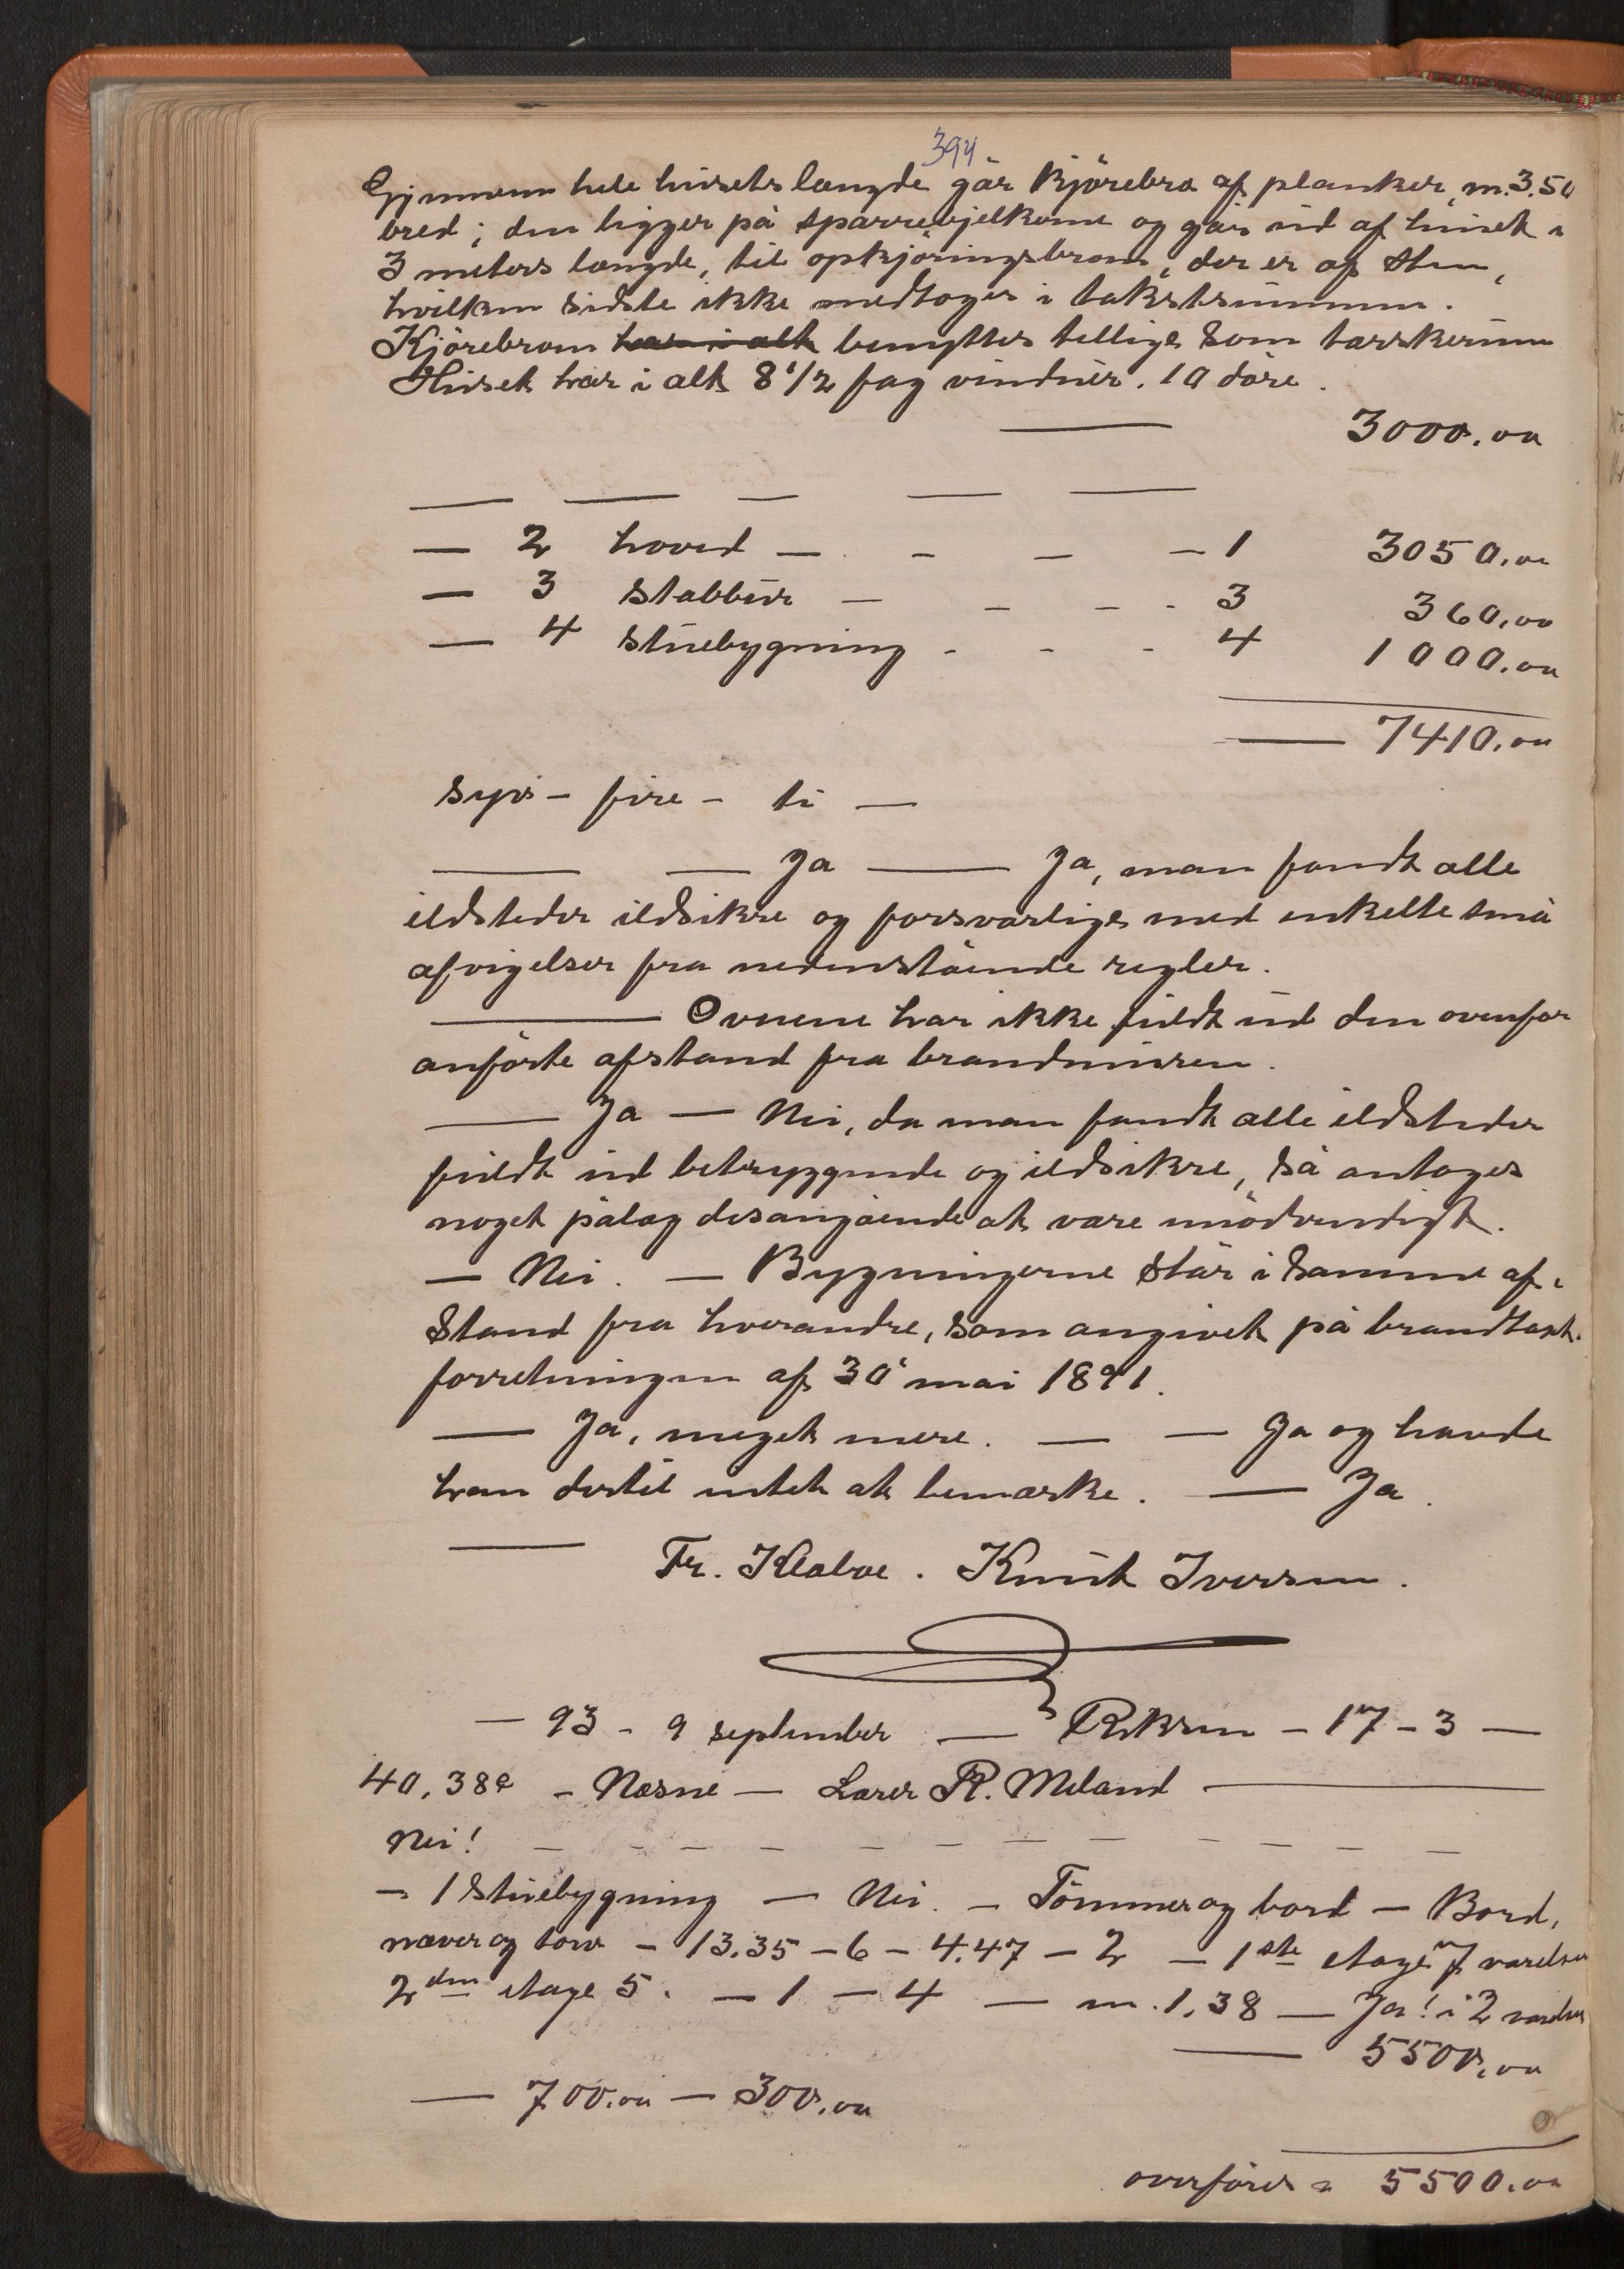 394
Gjennem hele husets længde går Kjørebro af planker, m. 3.50
bred; den ligger på sparrebjelkerne og går ud af huset i
3 meters længde, til opkjøringsbroen, der er af sten,
hvilken sidste ikke medtages i takstsummen.
Kjørebroen har i alt benyttes tillige som tærskerum
Huset har i alt 8 1/2 fag vinduer. 10 døre.
— 3000.00
— — — — —
— 2 hoved — - — — 1 3050.00
— 3 stabbur — - - - 3 360.00
— 4 stuebygning - - - 4 1000.00
— 7410.00
syv - fire - ti —
— — Ja — Ja, man fandt alle
ildsteder ildsikre og forsvarlige med enkelte små
afvigelser fra nedenstående regler.
— Ovnene har ikke fuldt ud den ovenfor
anførte afstand fra brandmuren.
— Ja — Nei, da man fandt alle ildsteder
fuldt ud betryggende og ildsikre, så antages
noget pålæg desangående at være unødvendigt.
— Nei. — Bygningerne står i samme af-
stand fra hverandre, som angivet på brandtaxt-
forretningen af 30 mai 1891.
— Ja, meget mere. — — Ja og havde
han dertil intet at bemærke. — Ja.
— Fr. Klaboe. Knut Iversen.
— 93 - 9 september — - 17 - 3 —
40.38 - Næsne — Lærer R. Meland —
Nei! - - - - - - - - - - - -
- 1 Stuebygning — Nei. - Tømmer og bord — Bord,
næver og torv - 13.35 - 6 - 4.47 - 2 - 1ste etage 7 værelser
2den etage 5. — 1 — 4 — m. 1,38 — Ja! i 2 værelser
— 5500.00
— 700.00 — 300.00
overføres = 5500.00